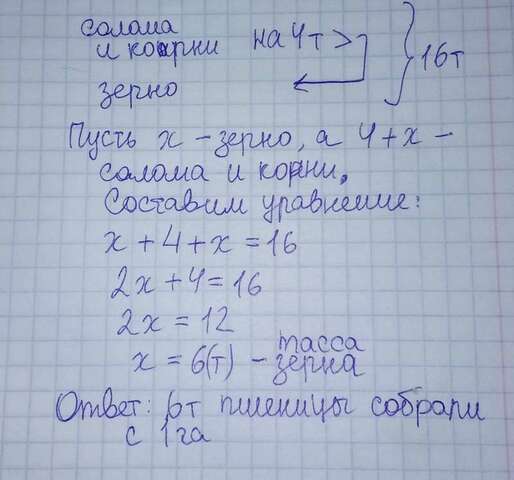 солома
и корни на 4т >
16т
зерно
Пусть x - зерно, а 4+x -
солома и корни.
Составим уравнение:
x + 4 + x = 16
2x + 4 = 16
2x = 12
x = 6(т) - масса
зерна
Ответ: 6т пшеницы собрали
с 1 га